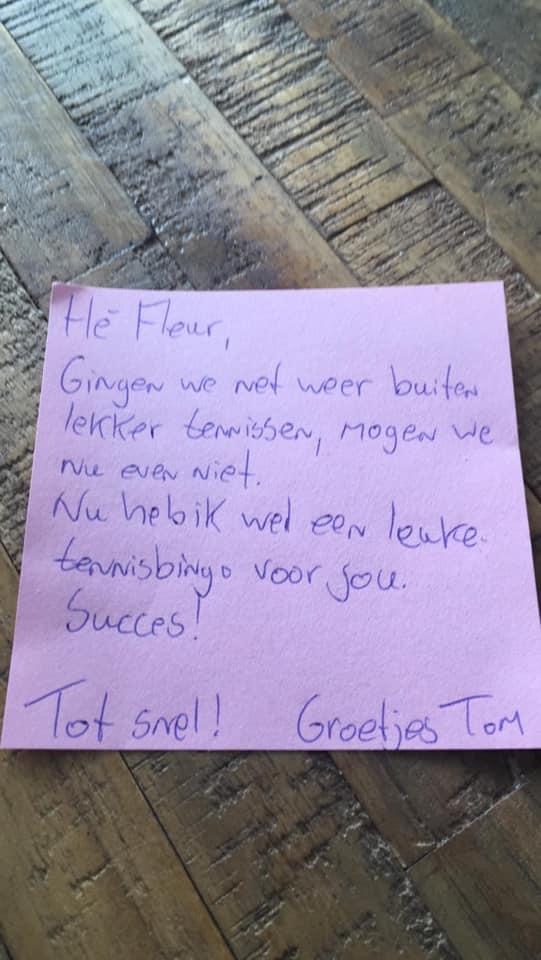 Hé Fleur,
Gingen we net weer buiten
lekker tennissen, mogen we
nu even niet.
Nu heb ik wel een leuke
tennisbingo voor jou.
Succes!
Tot snel! Groetjes Tom